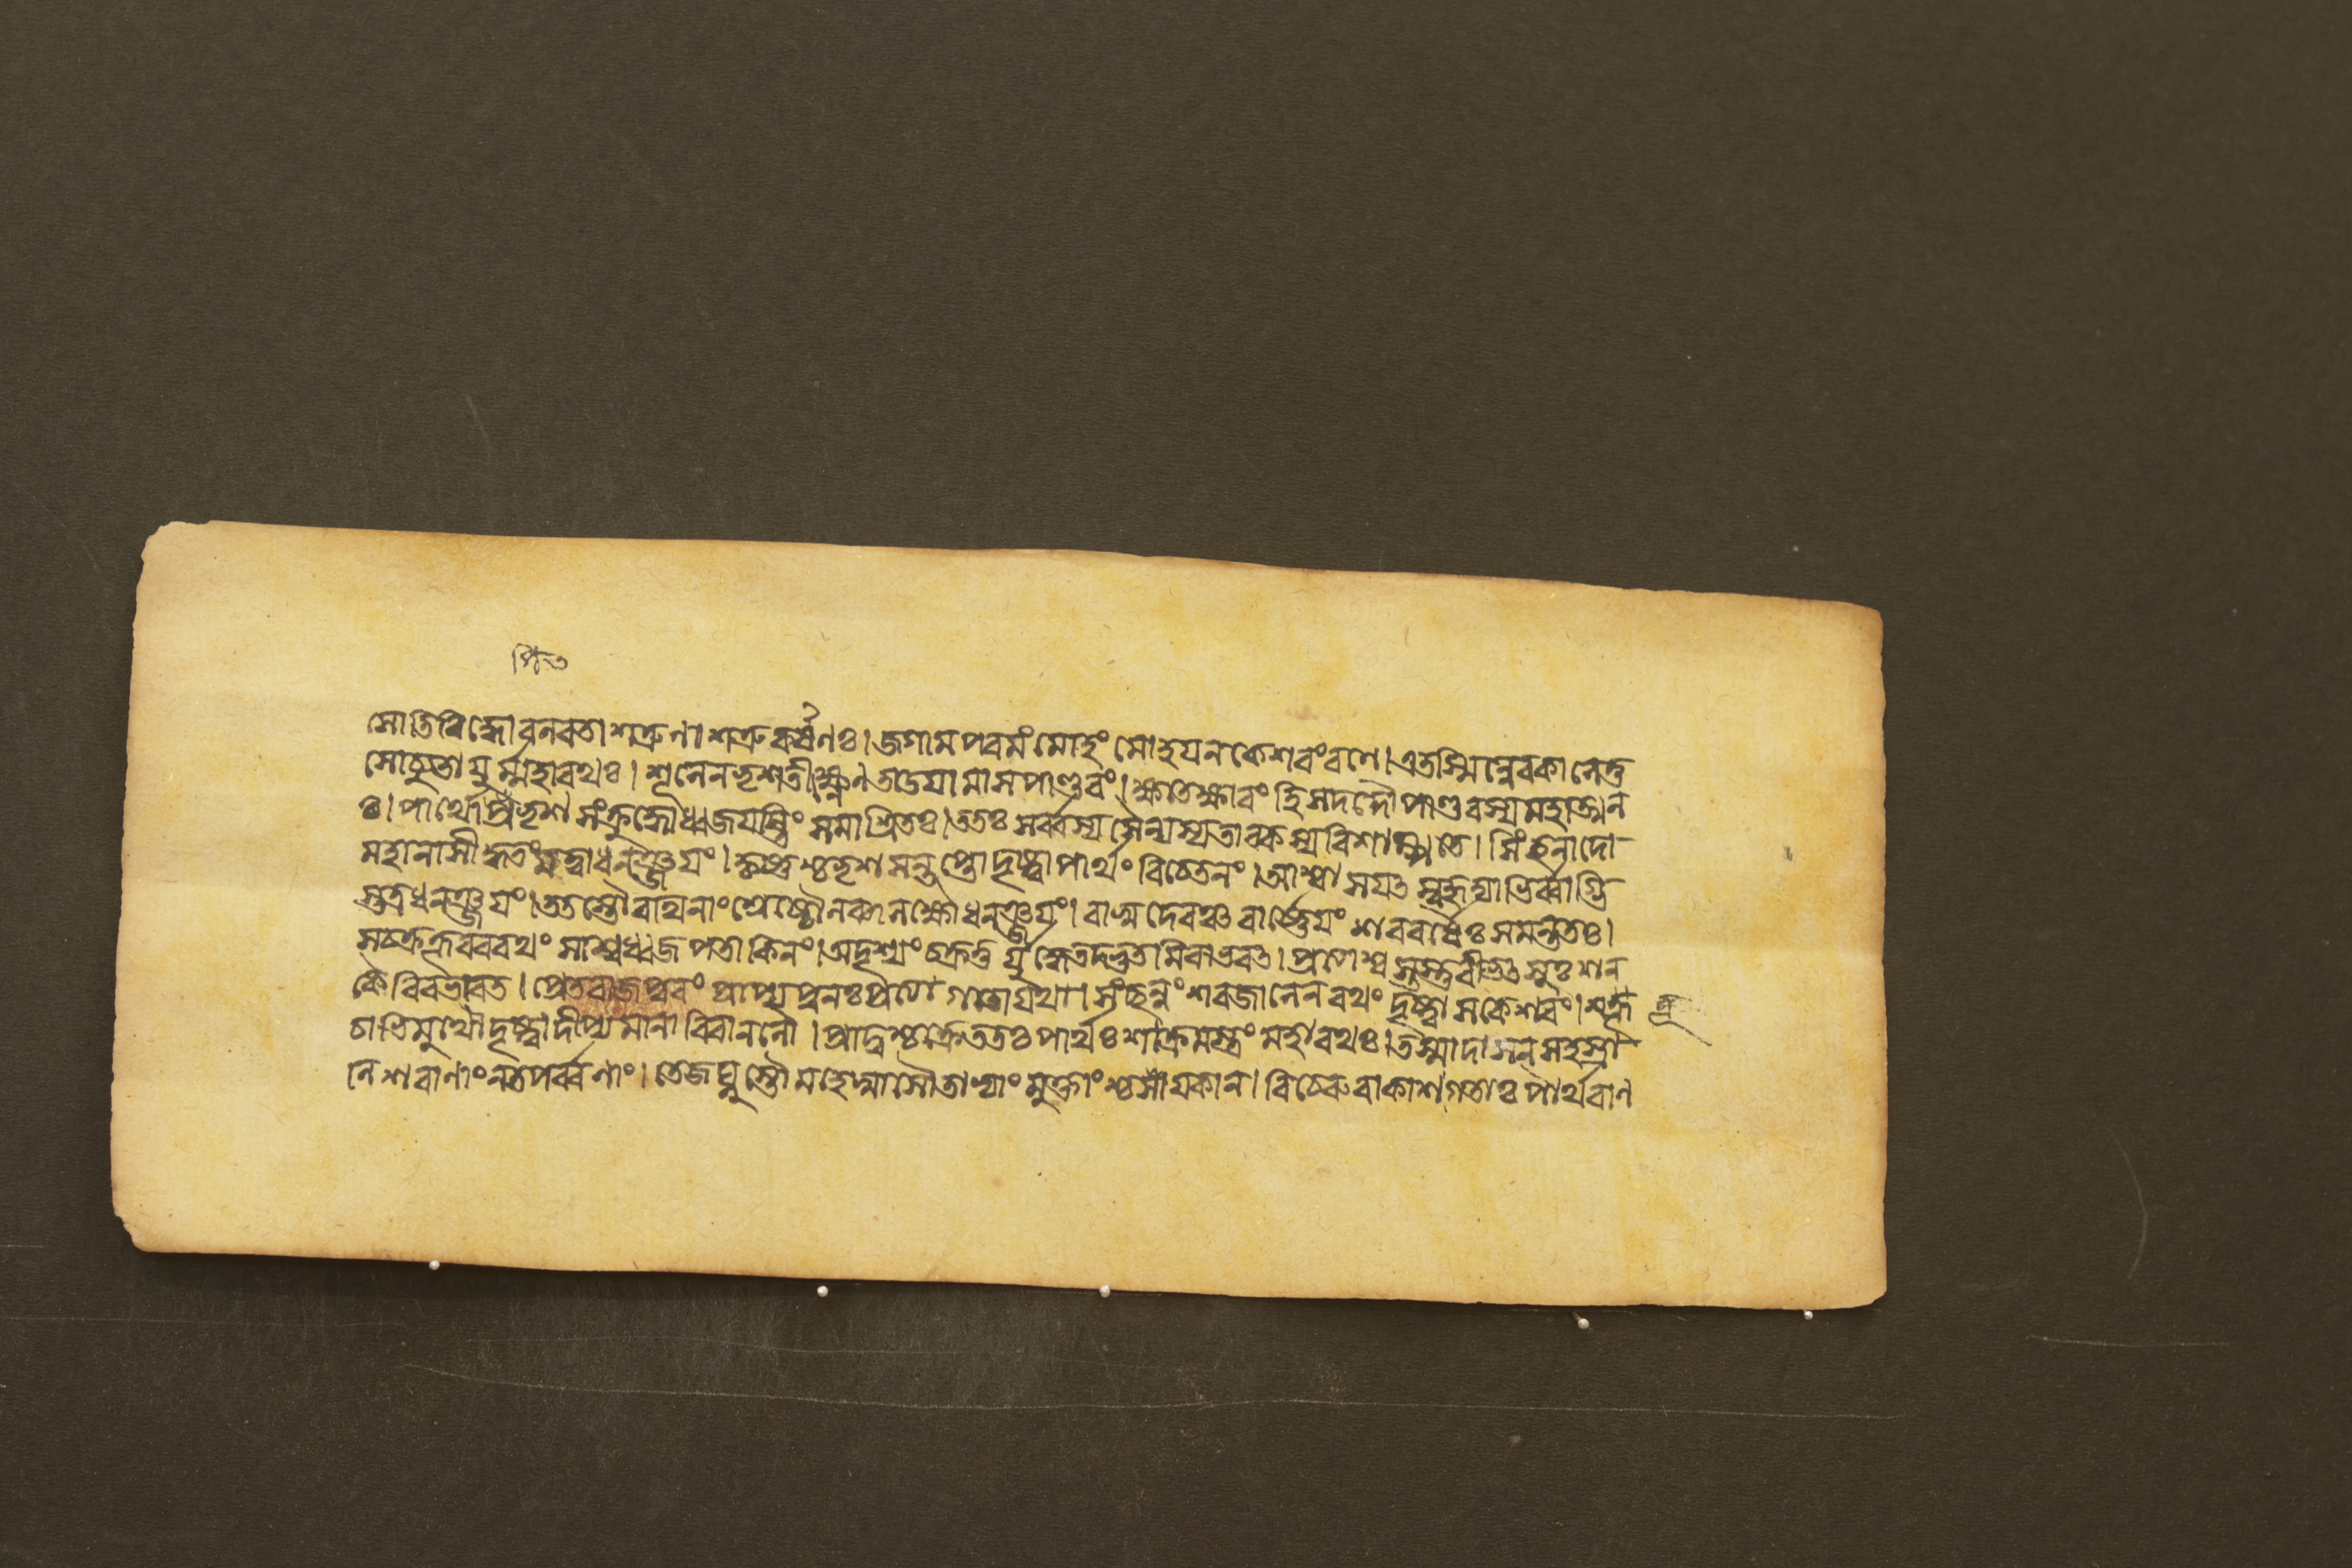 সোতিবিদ্ধো বলবতা শত্রুণা শত্রুকর্ষণঃ। জগাম পরমং মোহং মোহযন কেশবং রণে। এতস্মিন্নেবকালেতু
সোচ্যুতাযুর্ম্মহারথঃ। শূলেন ভৃশতীক্ষ্ণেন তাডযামাস পাণ্ডবং। ক্ষতেক্ষারং হি সদদৌ পাণ্ডবস্য মহাত্মন
ঃ। পার্থোপি ভৃশসংক্রুদ্ধো ধ্বজযষ্টিং সমাশ্রিতঃ। ততঃ সর্ব্বস্য সৈন্যস্য তাবকস্য বিশাম্পতে। সিংহনাদো
মহানাসীদ্ধতং মত্বা ধনঞ্জযং। কৃষ্ণশ্চ ভৃশসন্তপ্তো দৃষ্ট্বা পার্থং বিচেতনং। আশ্বাসযত সুহৃদ্যাভির্ব্বাগ্ভি
স্তত্র ধনঞ্জযং। ততস্তৌ রথিনাং শ্রেষ্ঠৌ লব্ধলক্ষৌ ধনঞ্জযং। বাসুদেবঞ্চ বার্ষ্ণেযং শরবর্ষৈঃ সমন্ততঃ।
সচক্রকূবররথং সাশ্বধ্বজপতাকিনং। অদৃশ্যং চক্রতুর্যুদ্ধে তদদ্ভুতমিবাভবত। প্রত্যাশ্বস্তস্তু বীভৎসুঃ শন
কৈরিব ভারত। প্রেতরাজপুরং প্রাপ্য পুনঃ প্রত্যাগতো যথা। সংছন্নং শরজালেন রথং দৃষ্ট্বা সকেশবং। শত্রূ
চাভিমুখৌ দৃষ্ট্বা দীপ্যমানাবিবানলৌ। প্রাদুশ্চক্রে ততঃ পার্থঃ শাক্রমস্ত্রং মহারথঃ। তস্মাদাসন্ সহস্রা
নি শরাণাং নতপর্ব্বণাং। তে জঘ্নুস্তৌ মহেষ্বাসৌ তাভ্যাং মুক্তাংশ্চ সাযকান। বিচেরুরাকাশগতাঃ পার্থবান